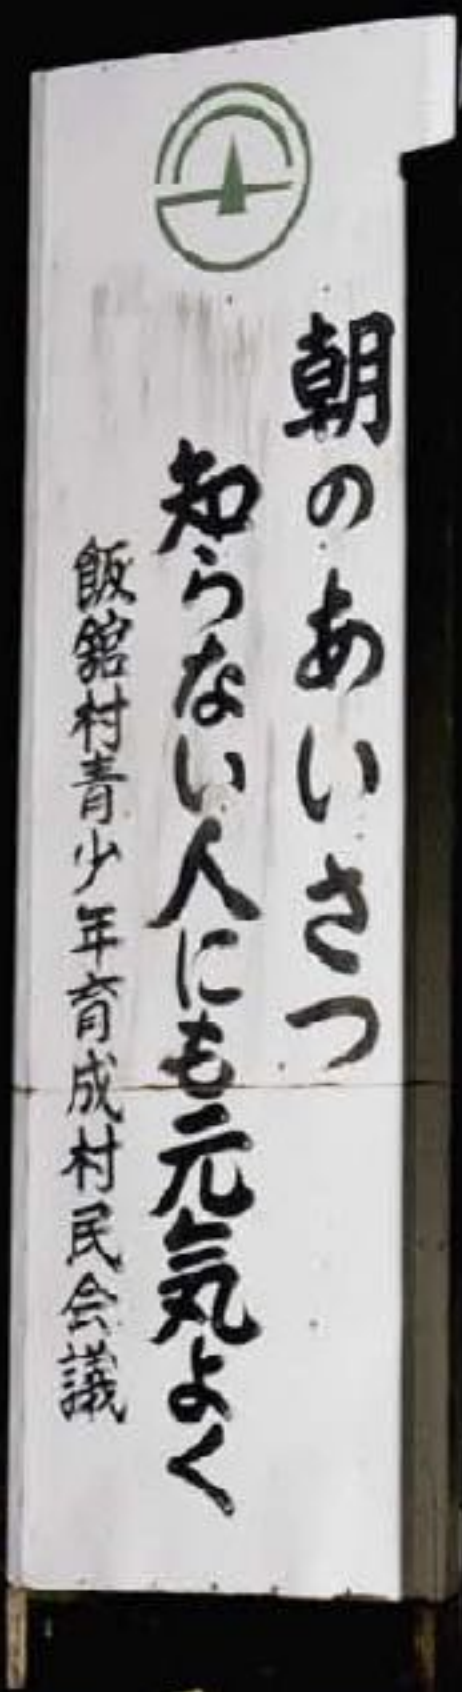 朝のあいさつ
知らない人にも元気よく
飯舘村青少年育成村民会議